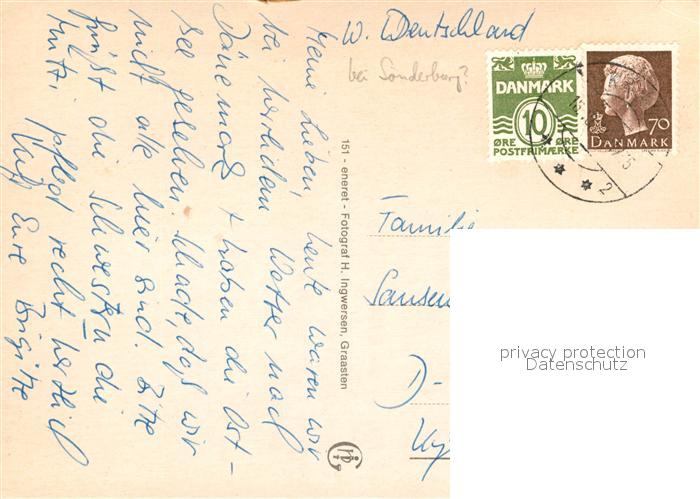 W. Deutschland
bei Sonderburg?
DANMARK
10
ØRE ØRE
POSTFRIMÆRKE
70
DANMARK
Meine Lieben, heute waren wir
bei herrlichem Wetter nach
Dänemark + haben die Ost-
see gesehen. Schade, daß wir
nicht alle hier sind. Bitte
grüßt die Schwestern die
pflegt recht herzlich
Eure Brigitte
151 - eneret - Fotograf H. Ingwersen, Graasten
Familie
Jansen
D-
privacy protection
Datenschutz
2